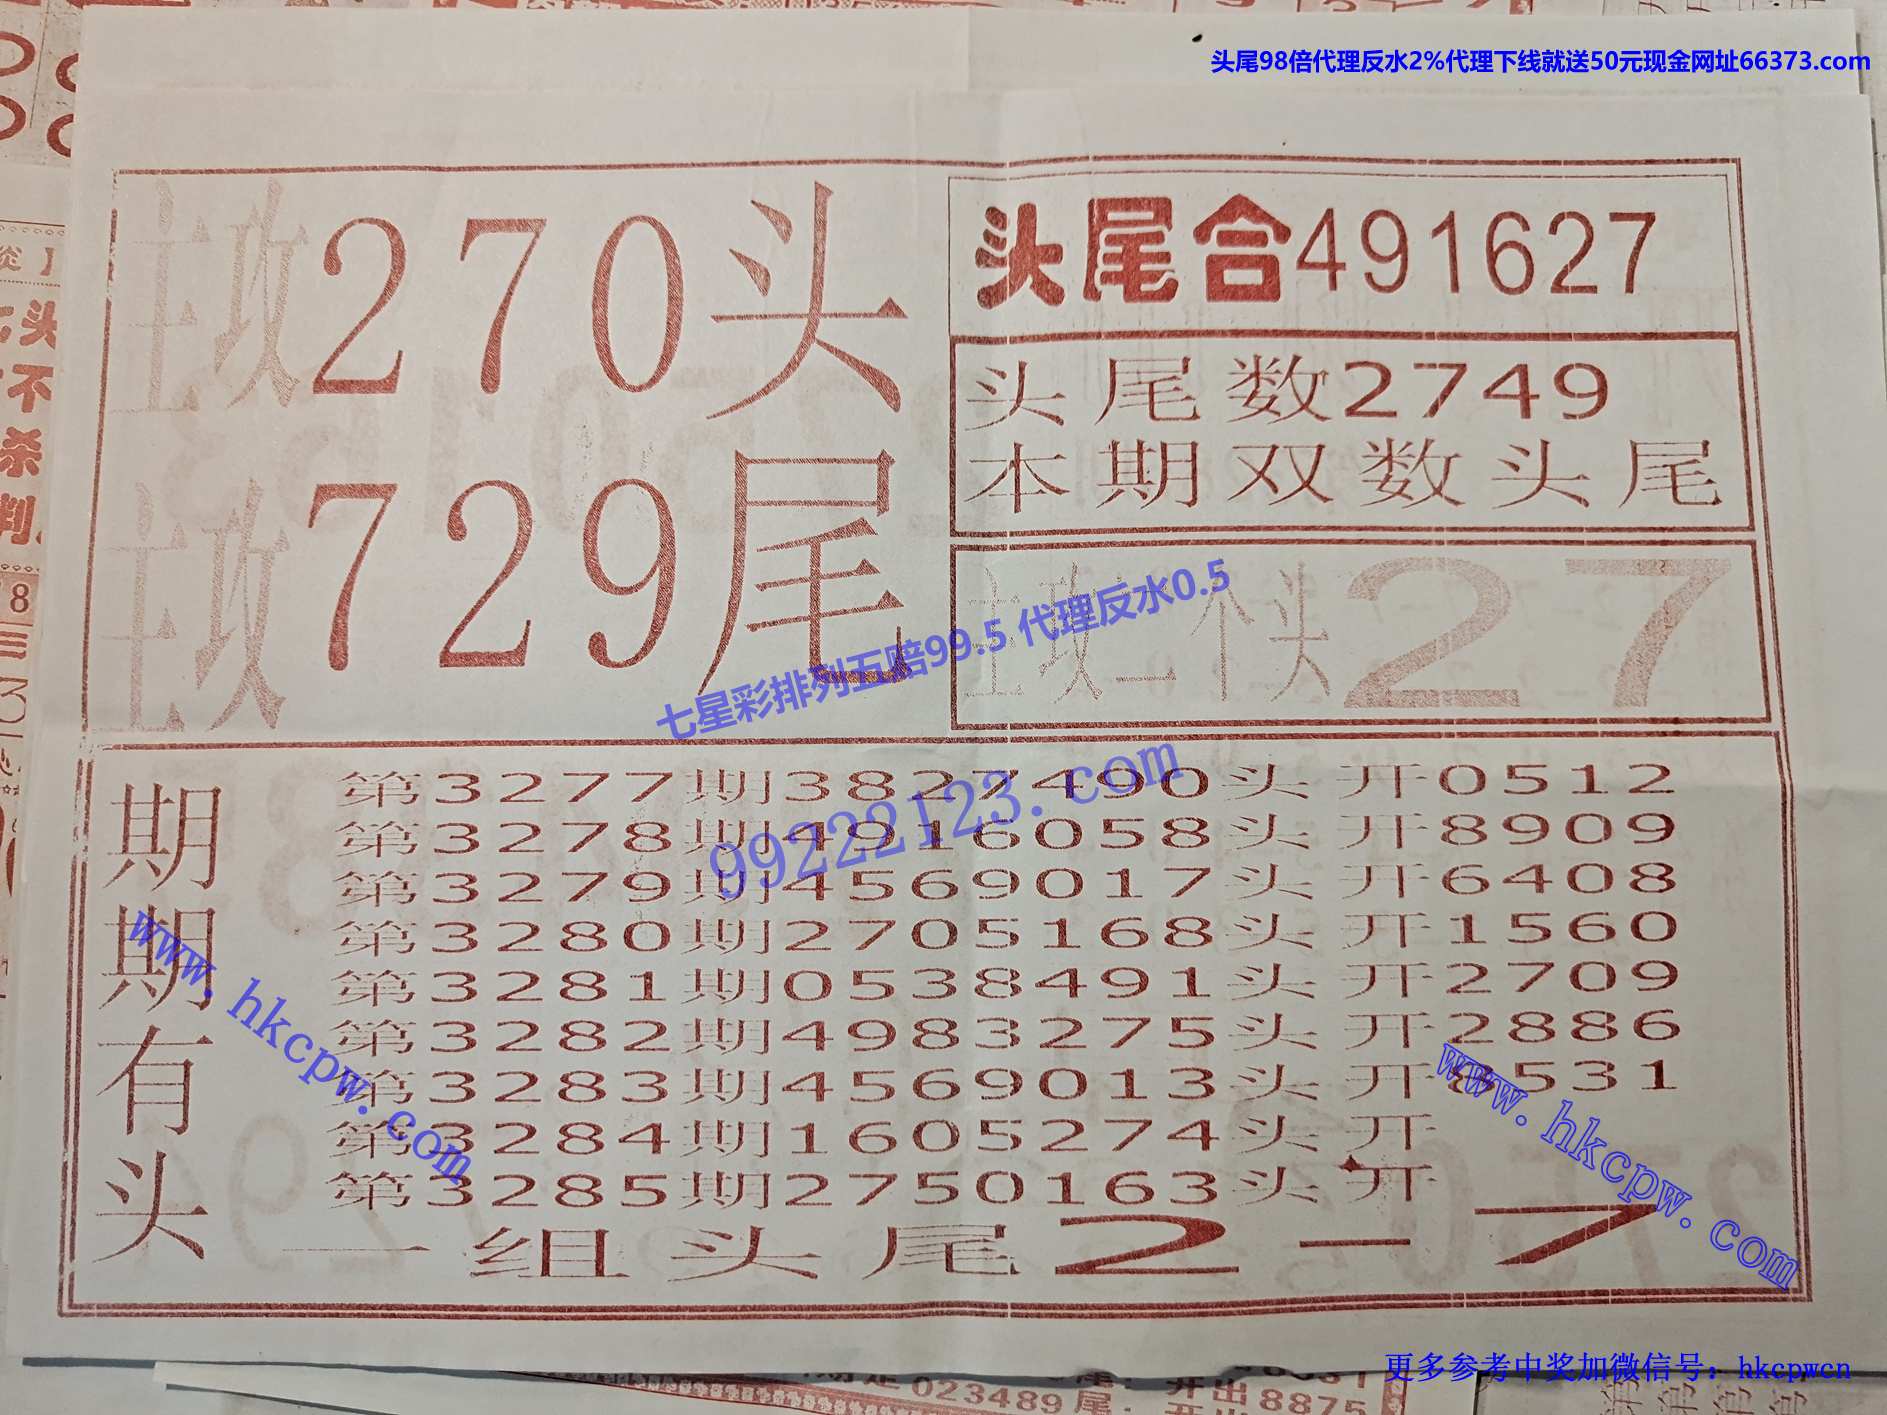 头尾98倍代理反水2%代理下线就送50元现金网址66373.com
主攻270头
主攻729尾
头尾合491627
头尾数2749
本期双数头尾
主攻二个头27
七星彩排列五赔99.5 代理反水0.5
99222123.com
期期有头
第3277期3827490头开0512
第3278期4916058头开8909
第3279期4569017头开6408
第3280期2705168头开1560
第3281期0538491头开2709
第3282期4983275头开2886
第3283期4569013头开8531
第3284期1605274头开
第3285期2750163头开
一组头尾2-7
www.hkcpw.com
www.hkcpw.com
更多参考中奖加微信号：hkcpwcn
023489尾
开出8875